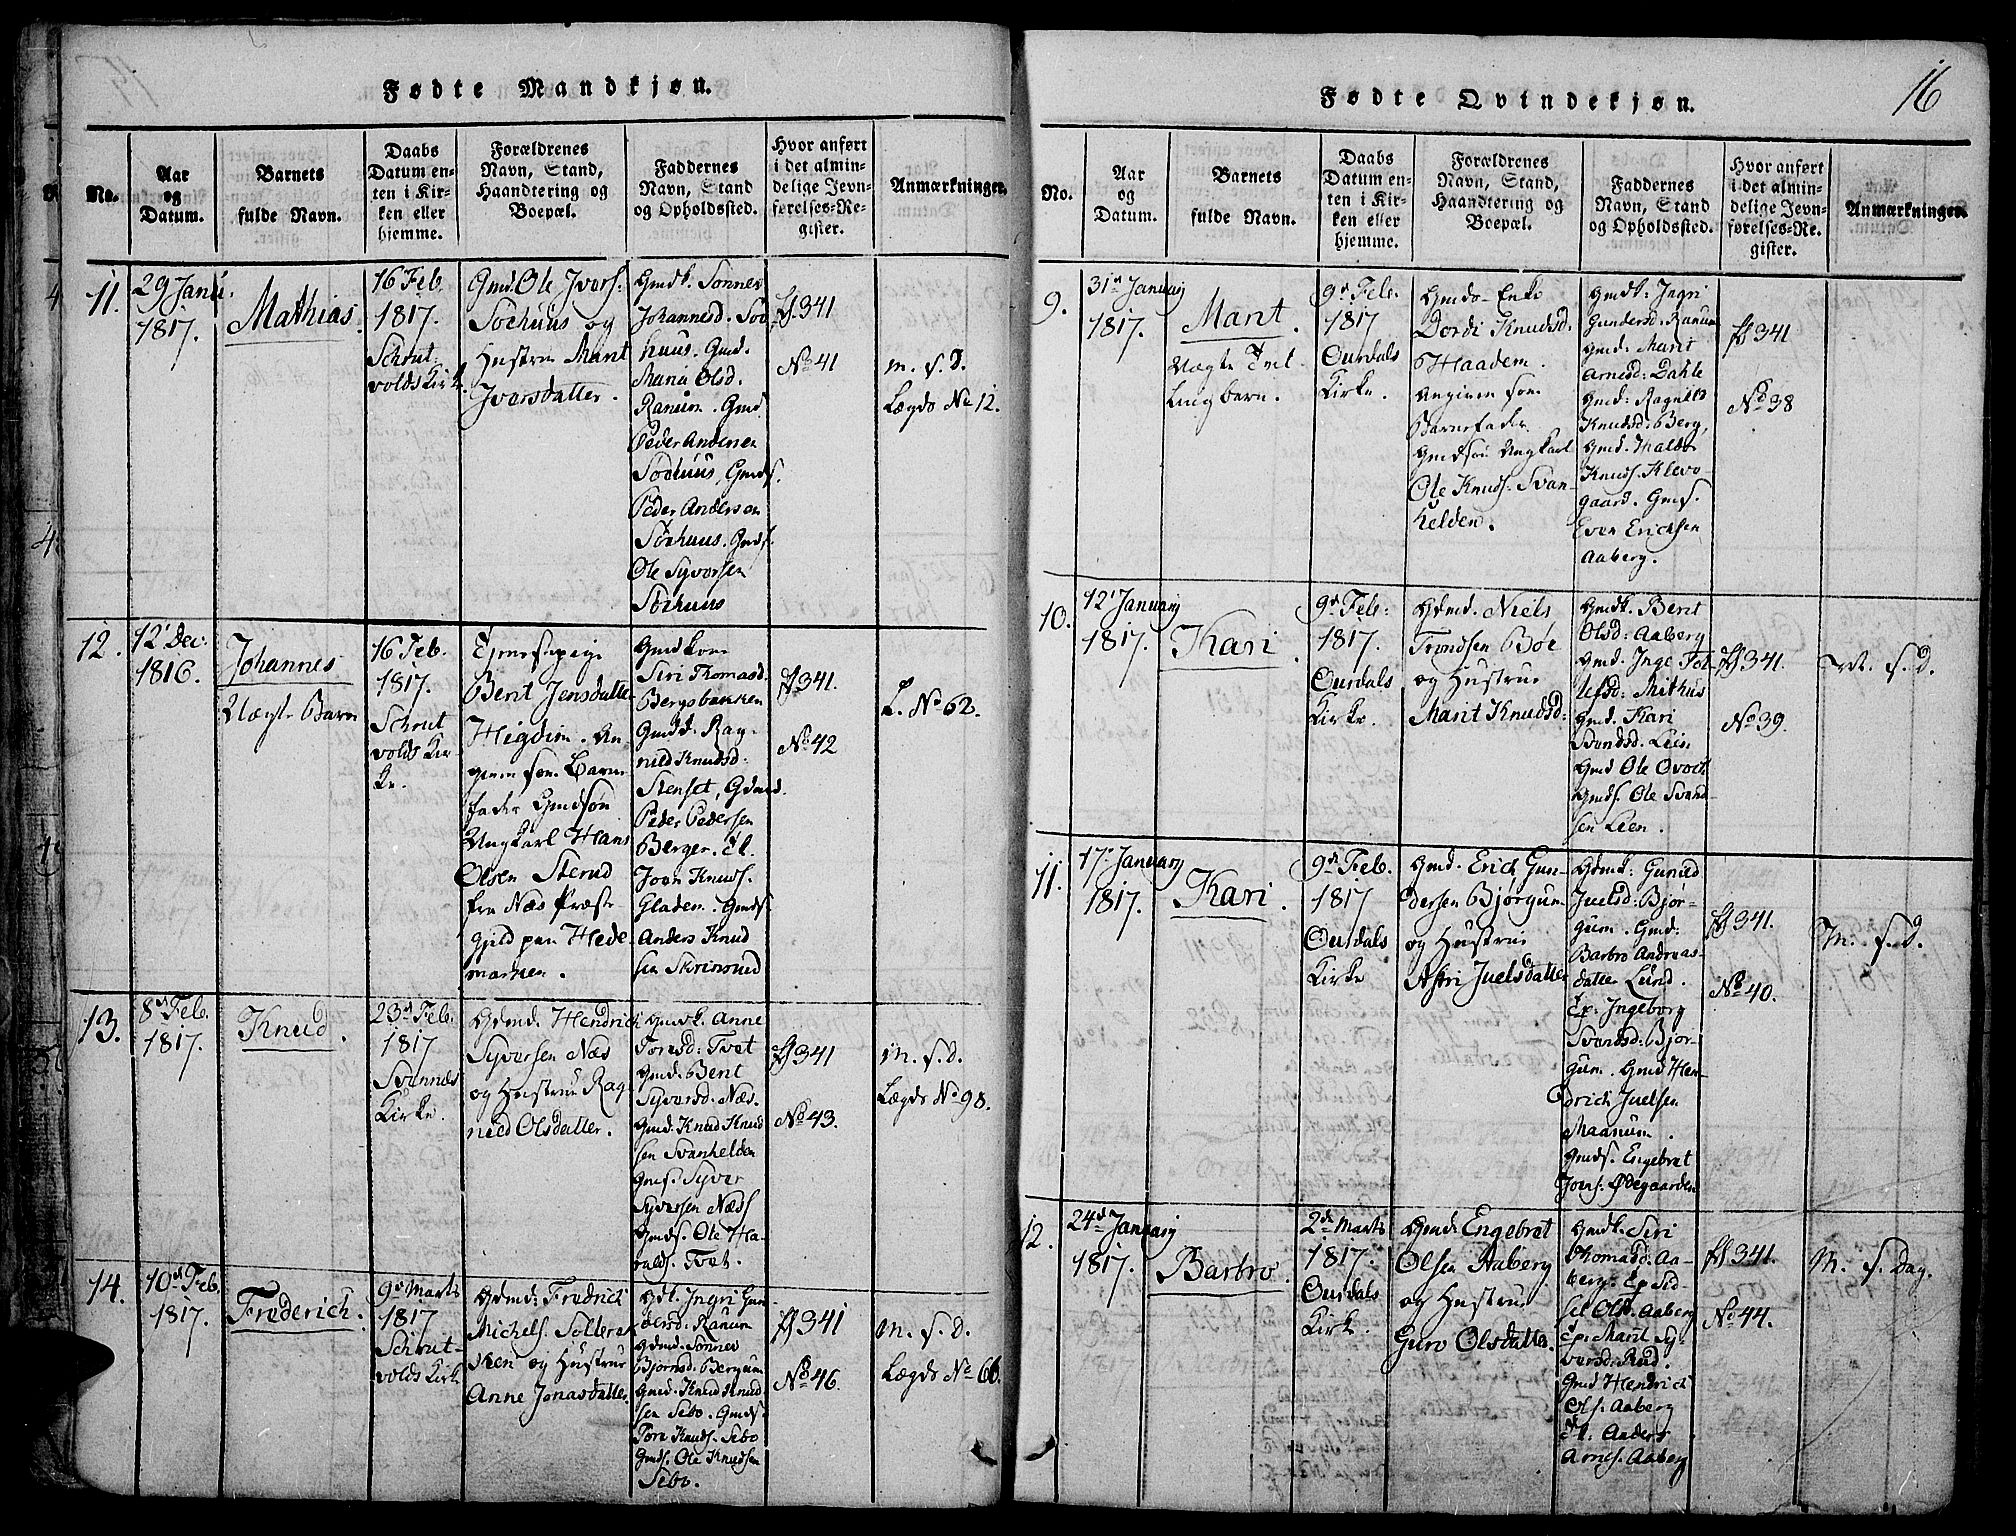 Fødte Mandkjøn.
No.
Aar
og
Datum.
Barnets
fulde Navn.
Daabs
Datum en-
ten i Kir-
ken eller
hjemme.
Forældrenes
Navn, Stand,
Haandtering og
Boepæl.
Faddernes
Navn, Stand
og Opholdssted.
Hvor anført
i det almin-
delige Jevn-
førelses-Re-
gister.
Anmærkninger.
11.
29 Janu.
1817.
Mathias.
16 Feb.
1817.
Schrut-
volds Kirk
Gmd. Ole Jvers.
Sørhuus og
Hustrue Marit
Jversdatter.
Gmdk. Sønnev
Johannesd. Sør
huus. Gmd.
Maria Olsd.
Ranum. Gmd
Peder Andersen
Sørhuus, Gmds.
Peder Andersen
Sørhuus. Gmds.
Ole Syversen
Sørhuus
fs 341
No 41
m. f. D.
Lægds No 12.
12.
12' Dec.
1816.
Johannes
Uægte Barn
16 Feb.
1817.
Schrut
volds Kir
ke.
Tjenestepige
Berit Jensdatte
Higdim. An
given som Barne
fader Gmdsøn
Ungkarl Hans
Olsen Sterud
fra Næs Præste
gjeld paa Hede
marken.
Gmdkone
Siri Thomasd
Bergsbakken
Gmdd. Rag-
nild Knudsd.
Stenset, Gdmd.
Peder Pedersen
Berger. Jt.
Joen Knuds.
Gladen. Gmds.
Anders Knud
sen Skrinsrud
fs 341.
No 42
L. No 62.
13.
8d Feb.
1817.
Knud.
23d Feb.
1817
Svennæs
Kirke.
Gdmd. Hendrich
Syversen Næs
og Hustrue Rag
nild Olsdatter.
Gmdk. Anne
Toresd: Tvet
Gmd: Berit
Syversd: Næs.
Gmd: Knud Knud
sen Svanhelden
Gmds. Syver
Syversen Næss
Gmds. Ole Ha-
ralds. Tvet.
fs 341
No 43.
m. f. D.
Lægds No 98.
14.
10d Feb.
1817.
Frederich.
9d Marts
1817
Schrut-
volds Kirk
Gdmd: Fredrich
Michels. Solleras
og Hustrue
Anne Jonasdatter.
Gdk. Ingri Gun
dersd: Ranum
Gdmd: Sønnev
Bjørnsd: Bergum
Gmd. Knud Knud
sen Sebo. Gmds.
Tore Knuds. Sebo
Gmds. Ole Knudsen
Sebo.
fs 341
No 46.
M. f. D.
Lægds No 66.
16
Fødte Qvindekjøn.
No.
Aar
og
Datum.
Barnets
fulde Navn.
Daabs
Datum en-
ten i Kir-
ken eller
hjemme.
Forældrenes
Navn, Stand,
Haandtering og
Boepæl.
Faddernes
Navn, Stand
og Opholdssted.
Hvor anført
i det almin-
delige Jevn-
førelses-Re-
gister.
Anmærkninger.
9.
31d Januarij
1817.
Marit.
Uægte Tvil-
lingbarn.
9d Feb.
1817
Ourdals
Kirke.
Gmds-Enke
Dordi Knudsd.
Haadem.
Angiven som
Barnefader
Gmdsøn Ungkarl
Ole Knuds. Svan-
helden.
Gmdk: Ingri
Gundersd: Ranum
Gmd: Marit
Arnesd: Dahle
Gmd: Ragnild
Knudsd: Berg,
Gmd. Haldor
Knuds. Klevo-
gaard. Gmds.
Even Ericksen
Aaberg.
fs 341
No 38
10.
12' Januarij
1817.
Kari.
9d Feb:
1817.
Ourdals
Kirke.
Gdmd. Niels
Trondsen Bøe
og Hustrue
Marit Knudsd:
Gmdk: Berit
Olsd: Aaberg
Gmd: Inge Tol-
lefsd: Mithus
Gmd: Kari
Svendsd: Leen
Gmd Ole Qvoch
Gmds. Ole Svend-
sen Leen.
fs 341.
No 39.
M. f. D.
11.
17' Januarij
1817.
Kari.
9d Feb.
1817
Ourdals
Kirke
Gmd. Erich Gun-
dersen Bjørgum
og Hustrue
Astri Juelsdatter
Gdmk: Gunild
Juelsd: Bjør-
gum. Gmd:
Barbro Andreas
datter Lund.
Ep. Ingeborg
Svendsd: Bjør-
gum. Gmd Hen-
drich Juelsen
Maanum.
Gmds. Engebret
Joens. Ødegaarden
fs 341.
No 40.
M. f. D.
12.
24d Januarij
1817.
Barbro.
2d Marts
1817.
Ourdals
Kirke.
Gmd: Engebret
Olsen Aaberg
og Hustrue
Guro Olsdatter.
Gmdk: Siri
Thomasd: Aa-
berg. Ep. Sid-
sel Olsd. Aaberg
Ep: Marit Sy-
versd: Rud.
Gmd Hendrich
Ols. Aaberg
Jt. Anders
Arnes. Aaberg
fs 341.
No 44.
M. f. Dag.